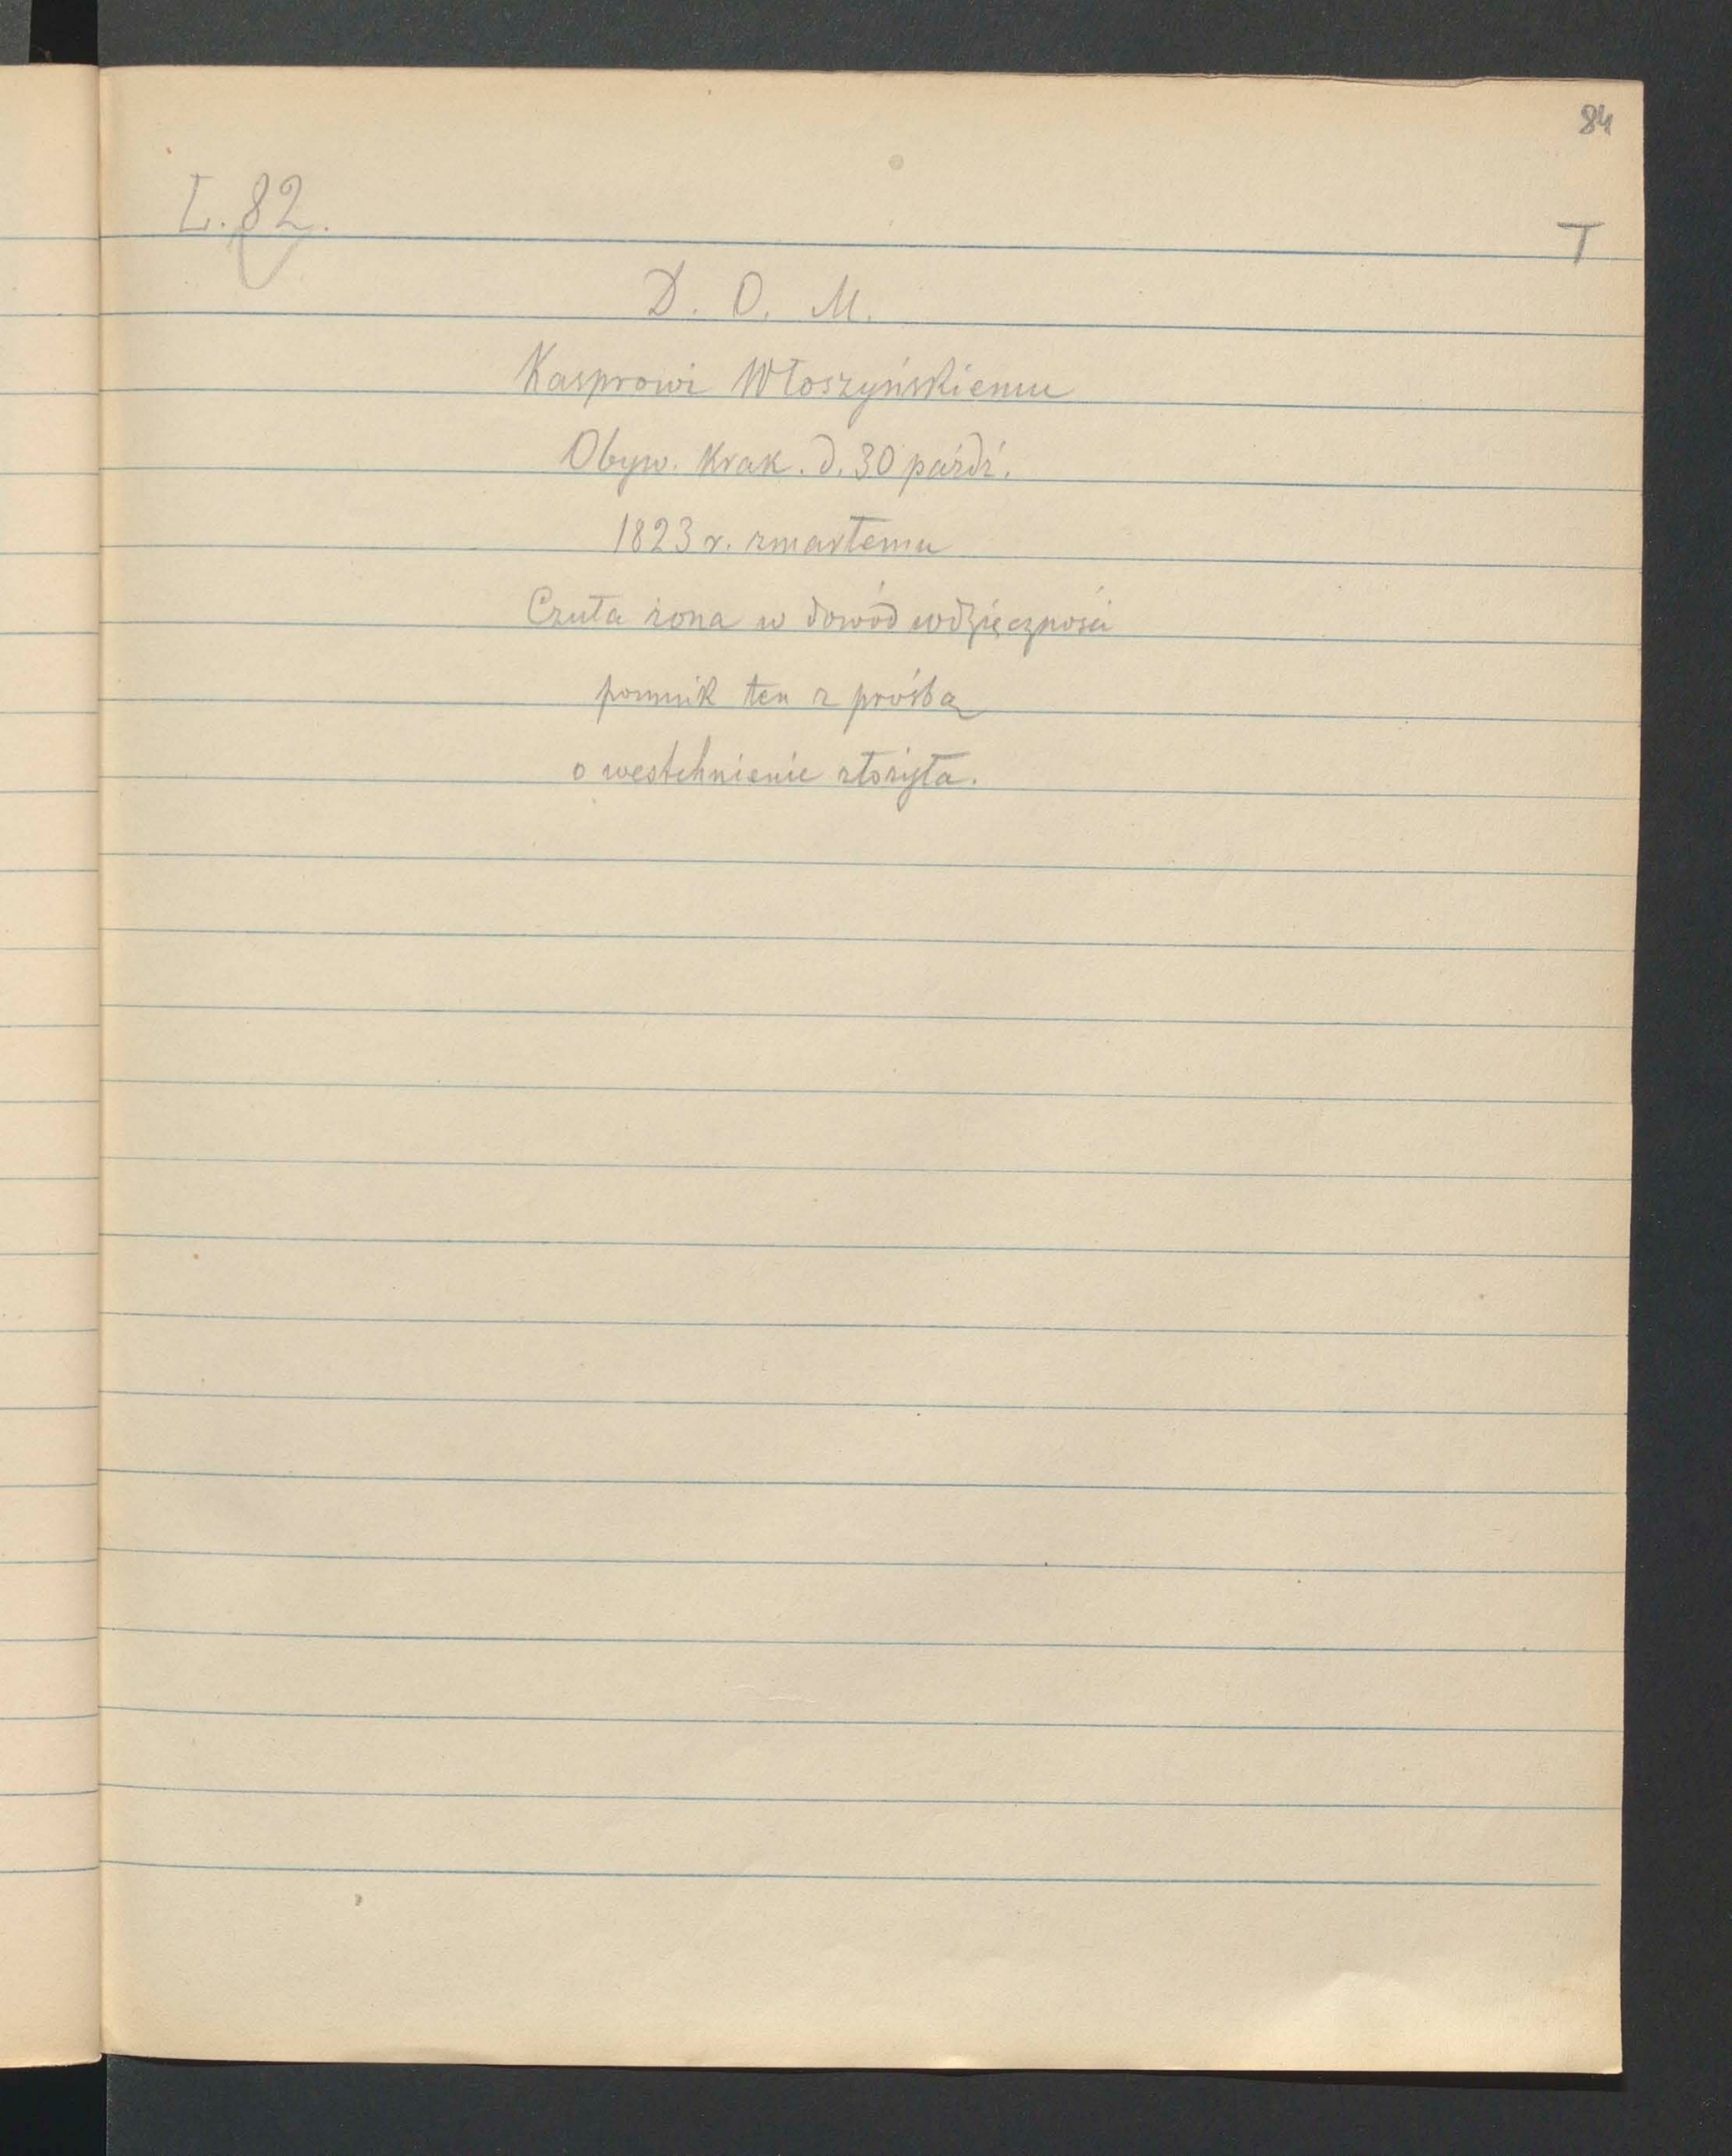 84
L. 82.
T
D. O. M.
Kasprowi Włoszyńskiemu
Obyw. Krak. d. 30 paźdź.
1823 r. zmarłemu
Czuła żona w dowód wdzięczności
pomnik ten z prośbą
o westchnienie złożyła.